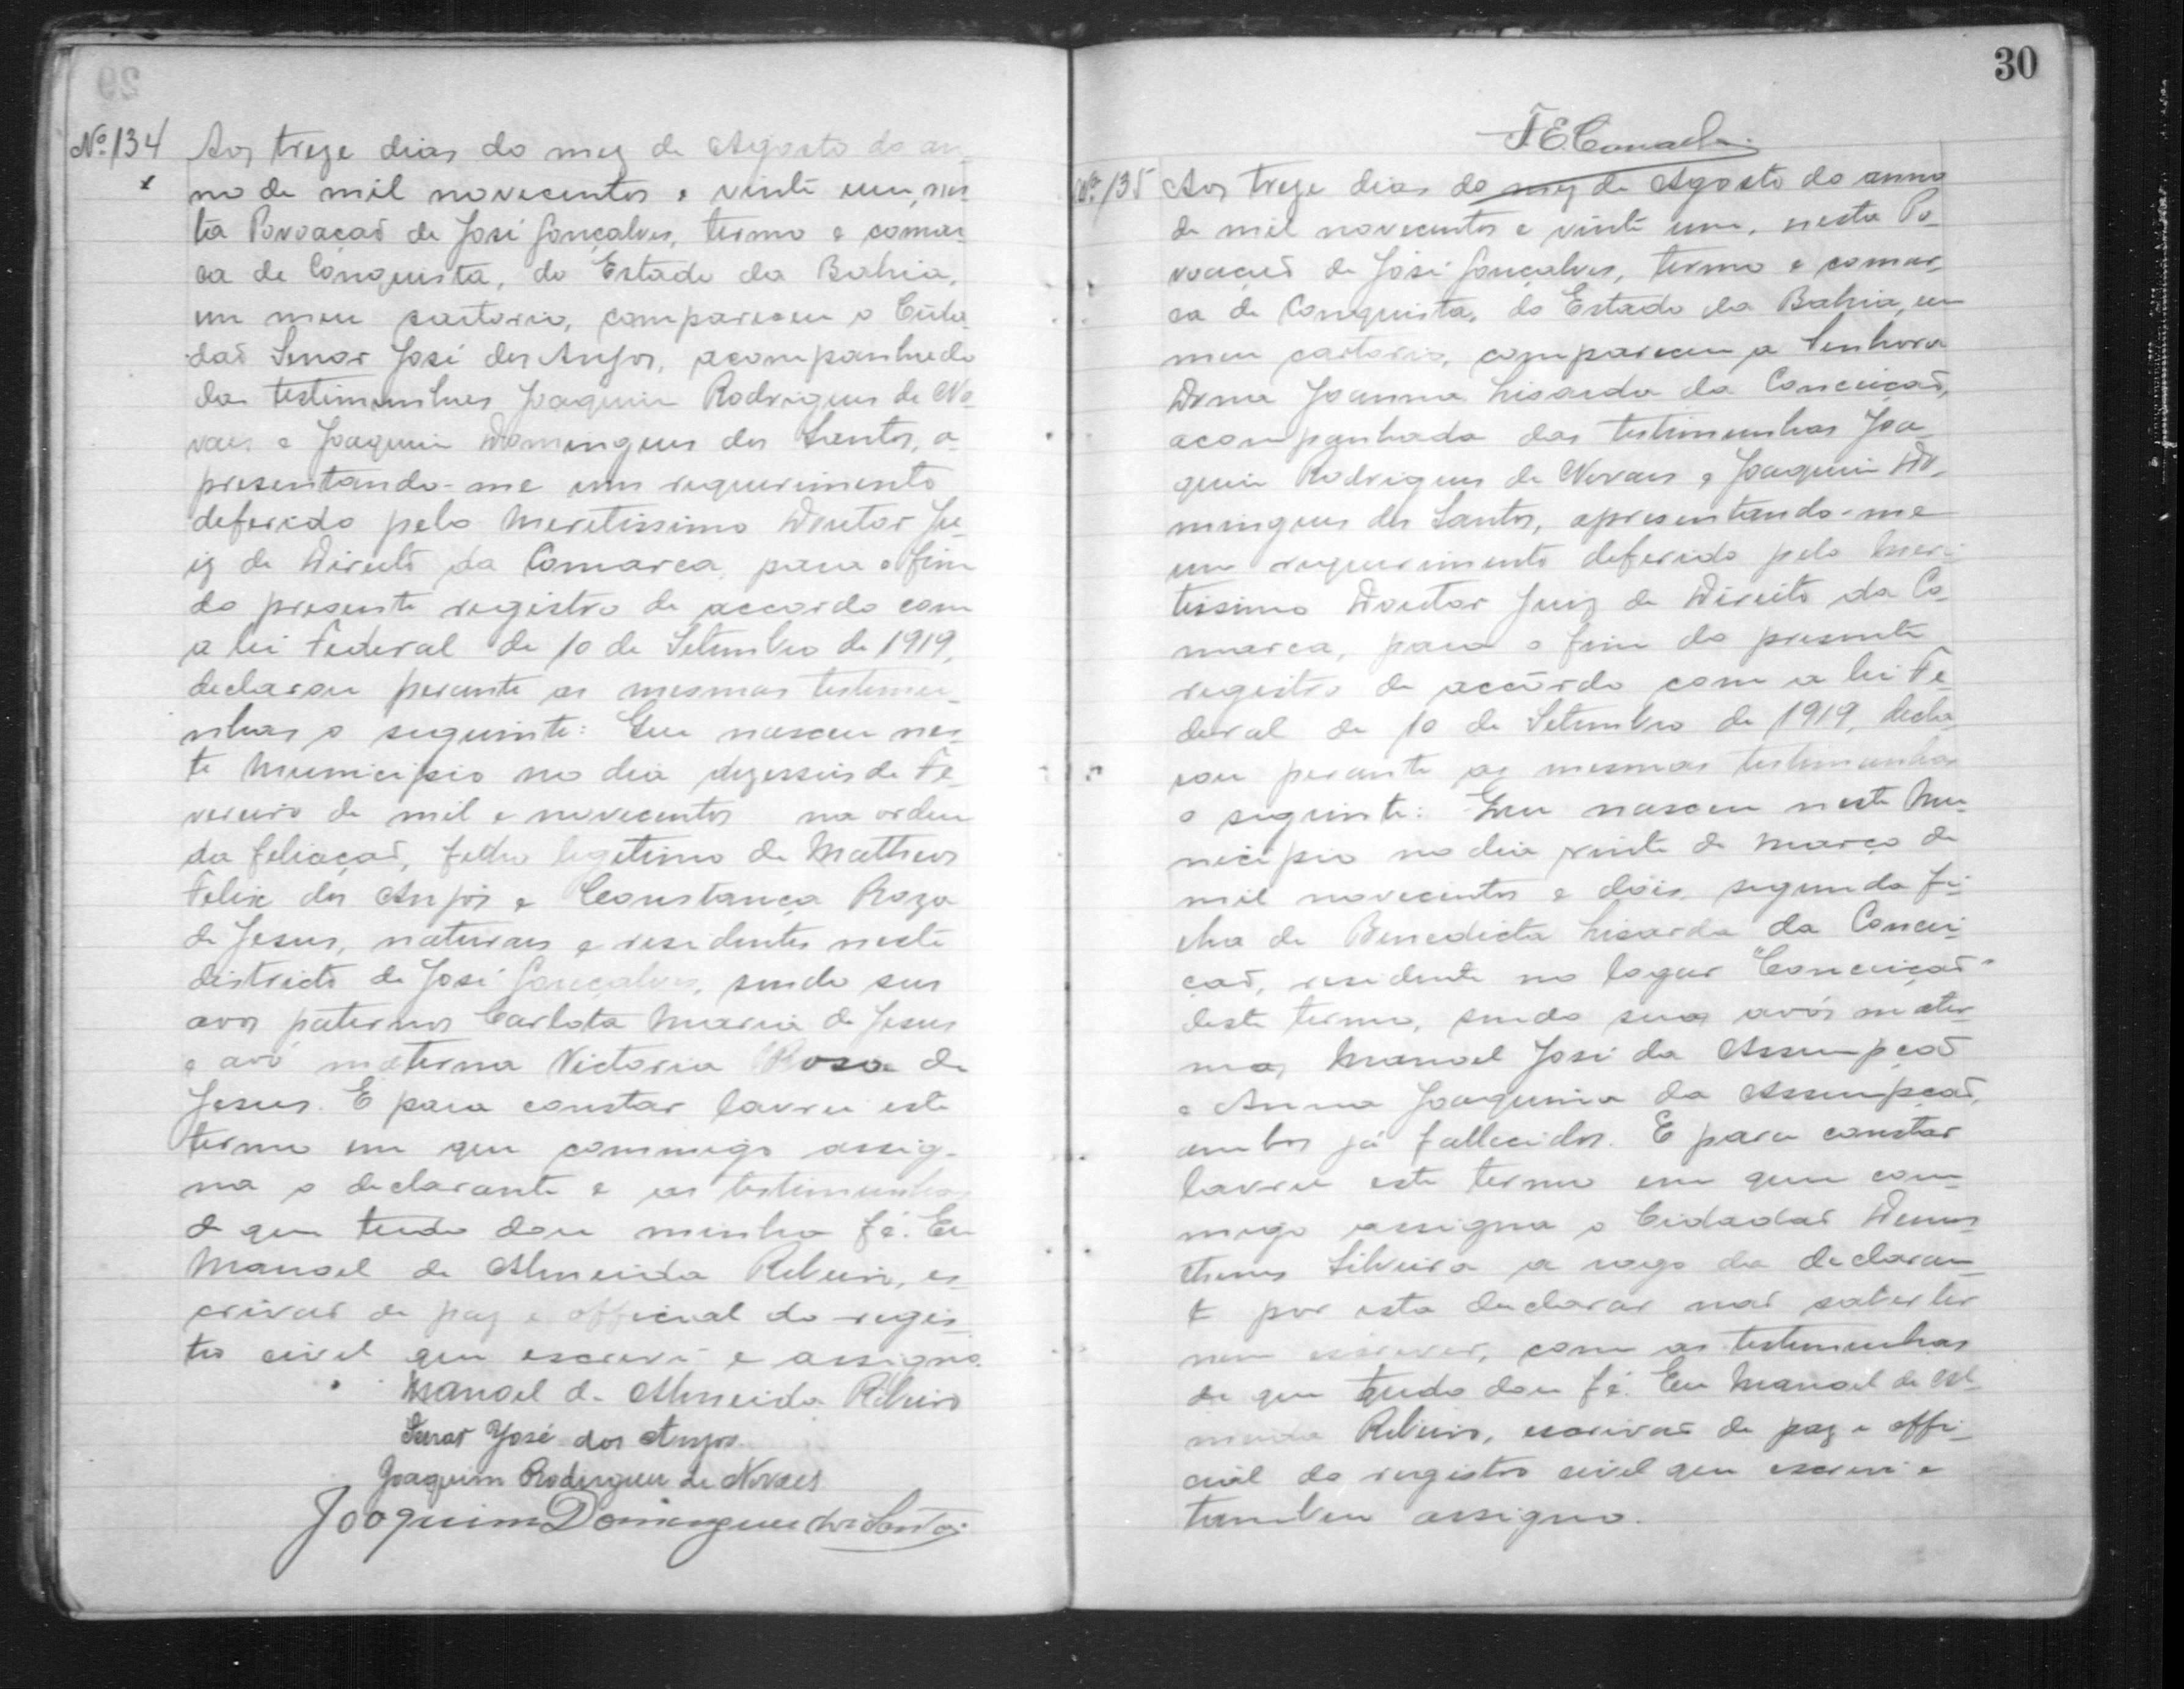 29
Nº 134 Aos treze dias do mez de Agosto do an-
x no de mil novecentos e vinte um, nes-
ta Povoaçaõ de José Gonçalves, termo e comar-
ca de Conquista, do Estado da Bahia,
em meu cartorio, compareceu o Cida-
daõ José dos Anjos, acompanhado
das testimunhas Joaquim Rodrigues de No-
vaes e Joaquim Domingues dos Santos, a-
presentando-me um requerimento
deferido pelo Meretissimo Doutor Ju-
iz de Direito da Comarca, para o fim
do presente registro de accordo com
a lei Federal de 10 de Setembro de 1919,
declarou perante as mesmas testemu-
nhas o seguinte: Que nasceu nes-
te Municipio no dia dezesseis de Fe-
vereiro de mil e novecentos na ordem
da feliaçaõ, filho legitimo de Matheus
Felix dos Anjos e Constança Roza
de Jesus, naturaes e residentes neste
districto de José Gonçalves, sendo seus
avos paternos Carlota Maria de Jesus
e avó materna Victoria Rosa de
Jesus. E para constar lavrei este
termo em que commigo assig-
na o declarante e as testimunhas
de que tudo dou minha fé. Eu
Manoel de Almeida Ribeiro, es-
crivaõ de paz e official do regis-
tro civil que escrevi e assigno.
Manoel de Almeida Ribeiro
José dos Anjos
Joaquim Rodrigues de Novaes
Joaquim Domingues dos Santos
30
Nº 135 Aos treze dias do mez de Agosto do anno
de mil novecentos e vinte um, nesta Po-
voaçaõ de José Gonçalves, termo e comar-
ca de Conquista, do Estado da Bahia, em
meu cartorio, compareceu a Senhora
Dona Joanna Lisarda da Conceiçaõ,
acompanhada das testimunhas Joa-
quim Rodrigues de Novaes e Joaquim Do-
mingues dos Santos, apresentando-me
um requerimento deferido pelo Mere-
tissimo Doutor Juiz de Direito da Co-
marca, para o fim do presente
registro de accôrdo com a lei Fe-
deral de 10 de Setembro de 1919, decla-
rou perante as mesmas testimunhas
o seguinte: Que nasceu neste Mu-
nicipio no dia vinte de Março de
mil novecentos e dois, segunda fi-
lha de Benedicta Lisarda da Concei-
çaõ, residente no logar "Conceiçaõ"
deste termo, sendo seus avós mater-
nos Manoel José da Assumpçaõ
e Anna Joaquina da Assumpçaõ,
ambos já fallecidos. E para constar
lavrei este termo em que com-
migo assigna o Cidadaõ Demos-
thenes Silveira a rogo da declaran-
te por esta declarar naõ saber ler
nem escrever, com as testimunhas
de que tudo dou fé. Eu Manoel de Al-
meida Ribeiro, escrivaõ de paz e offi-
cial do registro civil que escrevi e
tambem assigno.